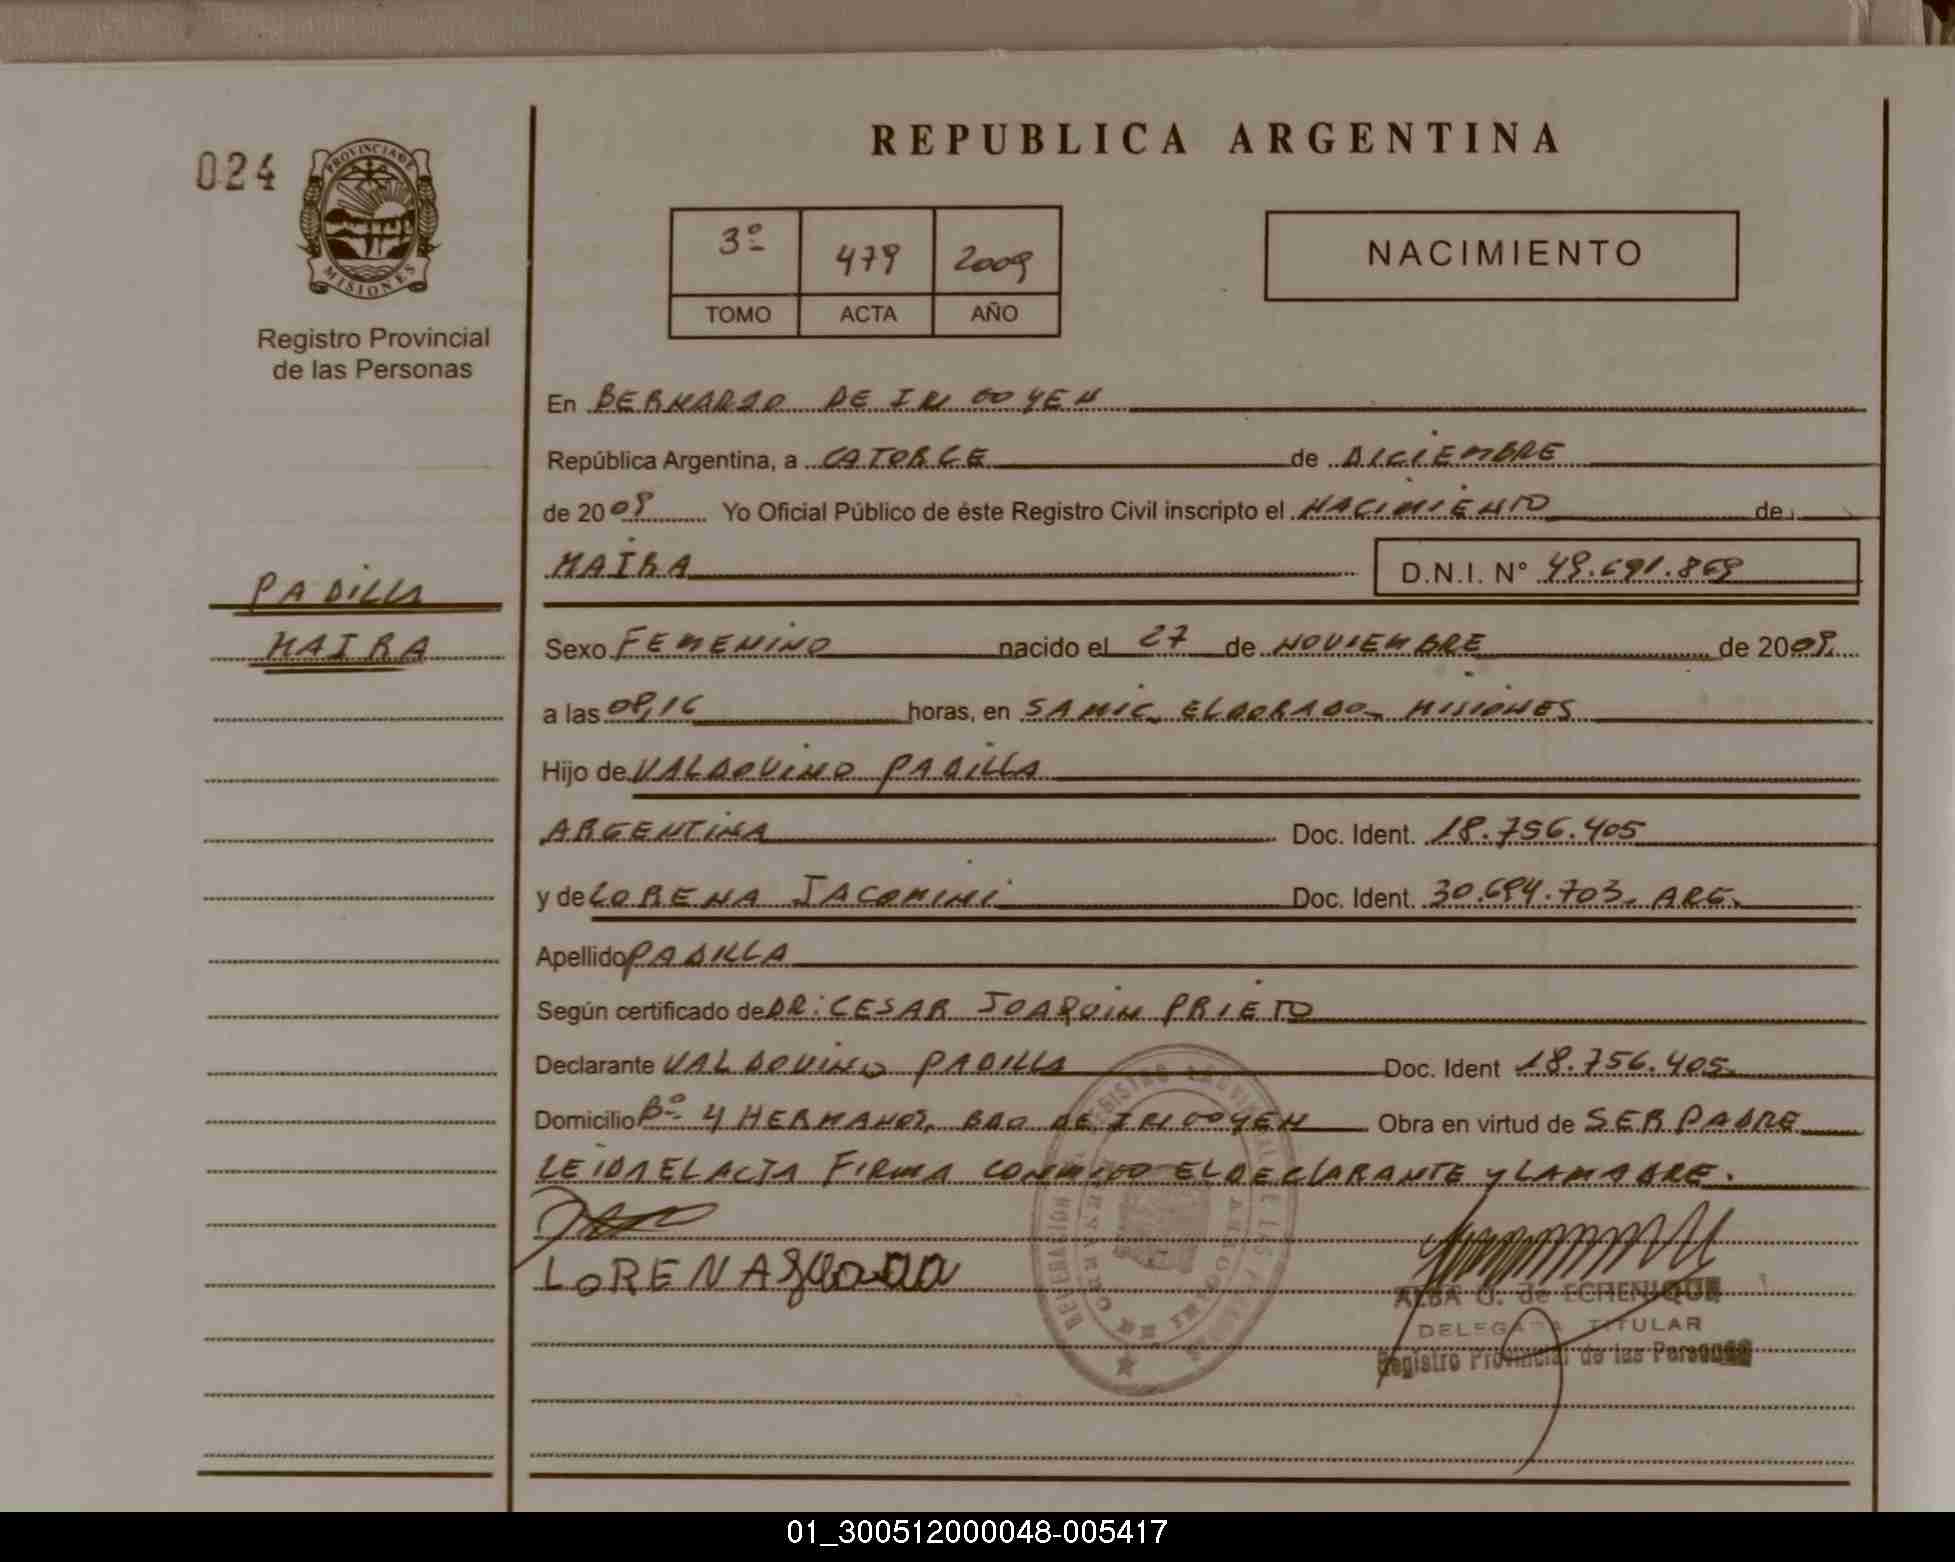 024
PROVINCIA DE
MISIONES
Registro Provincial
de las Personas
REPUBLICA ARGENTINA
3º 479 2009
TOMO ACTA AÑO
NACIMIENTO
En BERNARDO DE IRIGOYEN
República Argentina, a CATORCE de DICIEMBRE
de 2009 Yo Oficial Público de éste Registro Civil inscripto el NACIMIENTO de
MAIRA D.N.I. Nº 49.691.869
PADILLA
MAIRA
Sexo FEMENINO nacido el 27 de NOVIEMBRE de 2009.
a las 08,16 horas, en SAMIC. ELDORADO- MISIONES
Hijo de VALDOVINO PADILLA
ARGENTINA Doc. Ident. 18.756.405
y de LORENA JACOMINI Doc. Ident. 30.694.703. ARG.
Apellido PADILLA
Según certificado de DR: CESAR JOAQUIN PRIETO
Declarante VALDOVINO PADILLA Doc. Ident 18.756.405.
Domicilio Bº 4 HERMANOS, BDO DE IRIGOYEN Obra en virtud de SER PADRE
LEIDA EL ACTA FIRMA CONMIGO EL DECLARANTE Y LA MADRE.
LORENA
ALBA G. de ECHENIQUE
DELEGADA TITULAR
Registro Provincial de las Personas
01_300512000048-005417